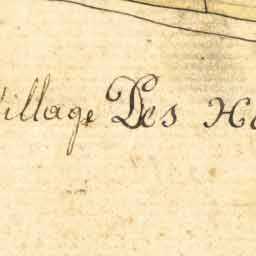 Village Des H